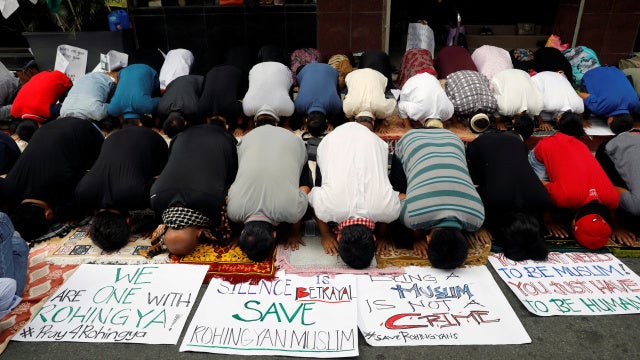 WE
ARE ONE WITH
ROHINGYA!
#Pray4Rohingya
SILENCE IS BETRAYAL
SAVE
ROHINGYAN MUSLIM
BEING A
MUSLIM
IS NOT A
CRIME
#SAVEROHINGYANS
NEED
TO BE MUSLIM.
YOU JUST HAVE
TO BE HUMAN